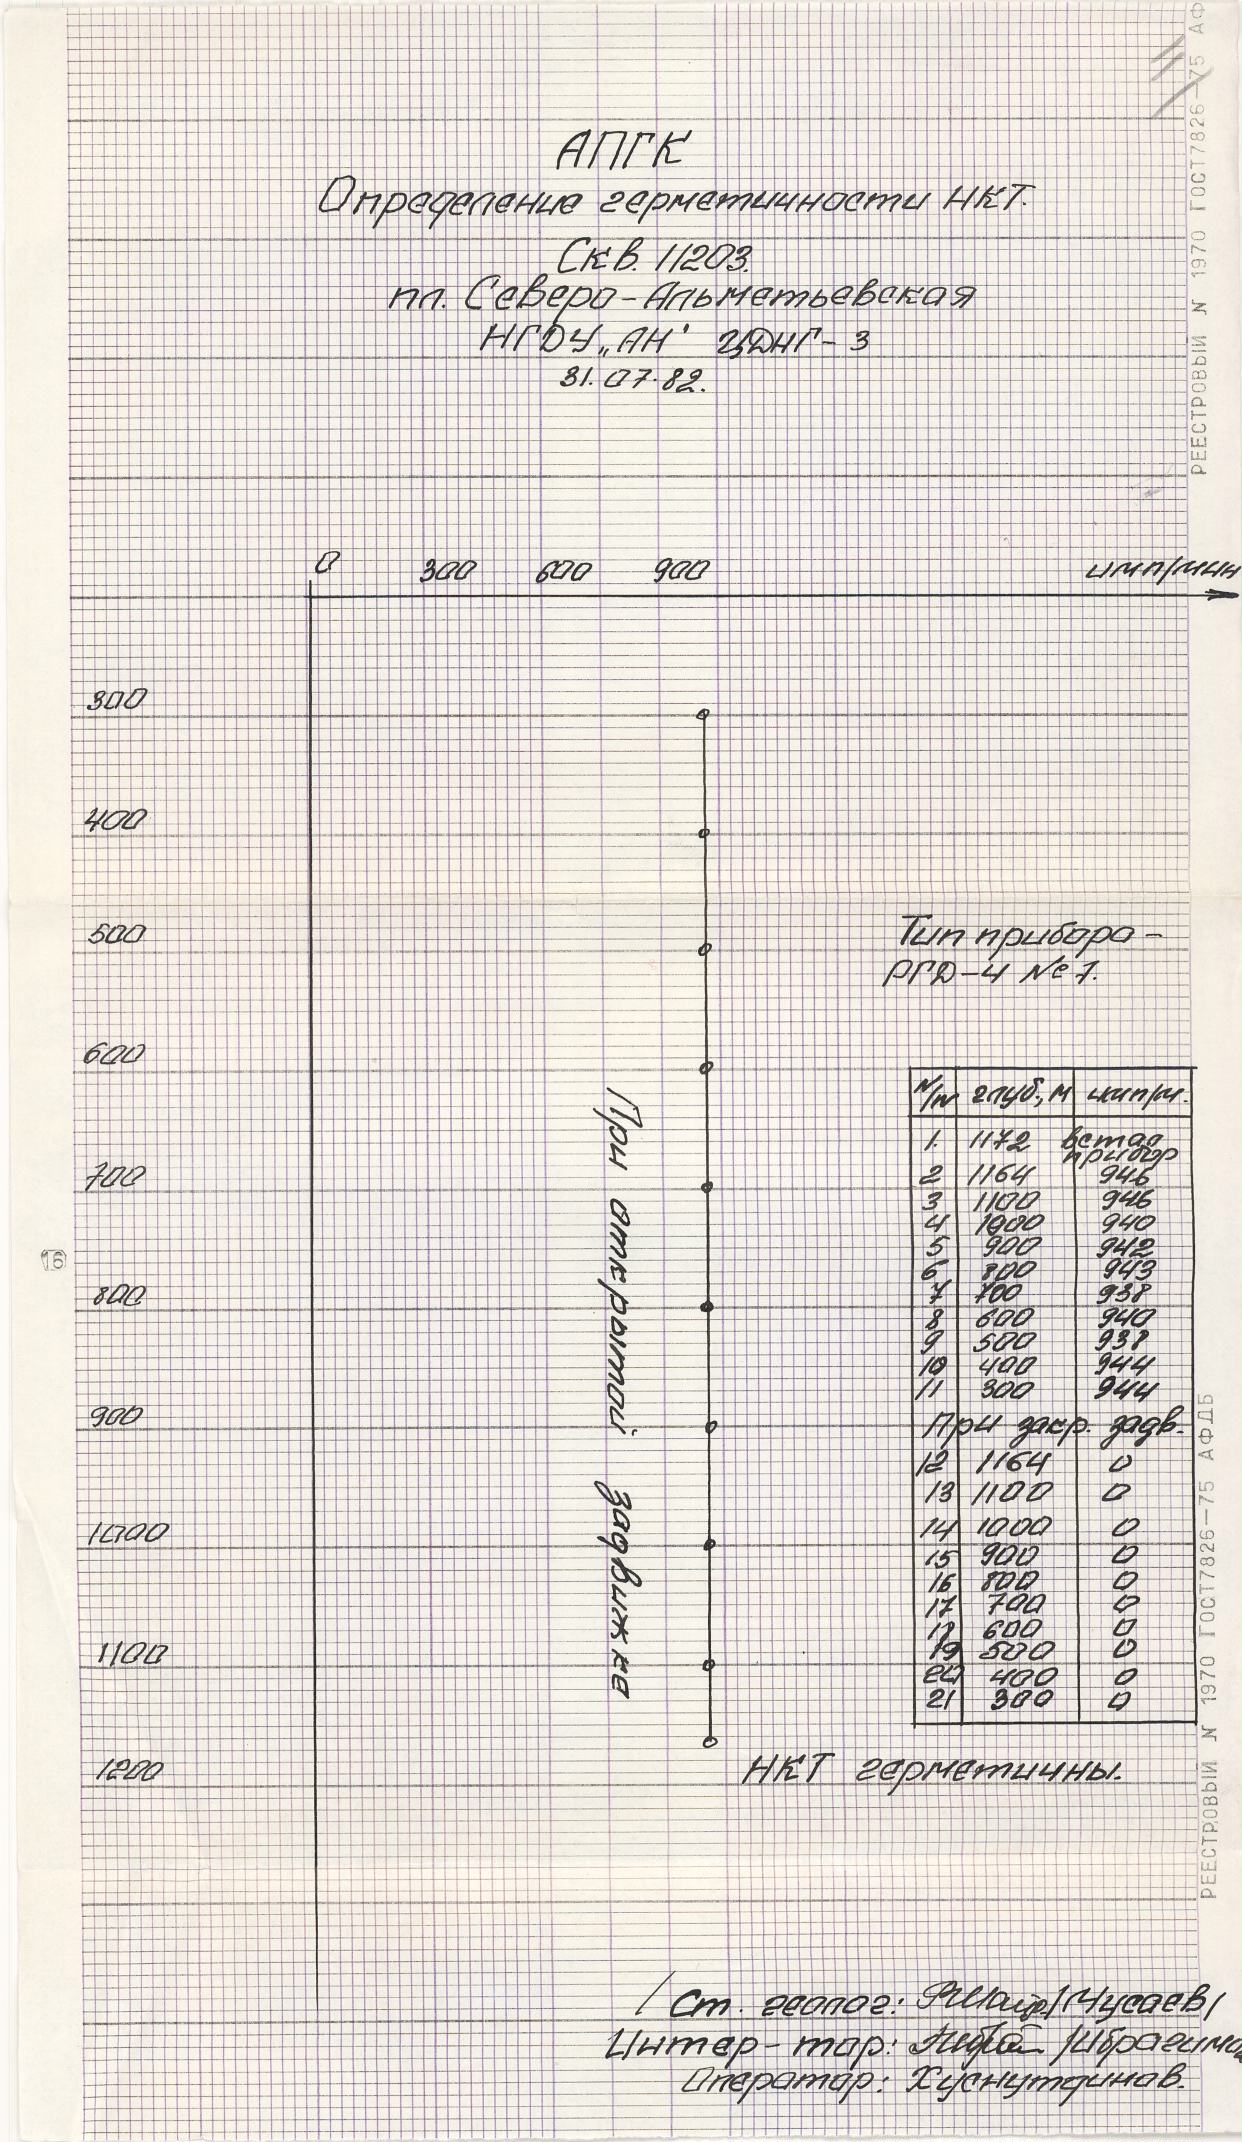 АПГК
Определение герметичности НКТ.
Скв. 11203.
пл. Северо-Альметьевская
НГДУ „АН" ЦДНГ-3
31.07.82.
РЕЕСТРОВЫЙ N 1970 ГОСТ7826-75 АФ
0 300 600 900 имп/мин
300
400
500
600
700
800
900
1000
1100
1200
16
При открытой задвижке
Тип прибора-
РГД-4 № 7.
N/п глуб., м имп/м.
1. 1172 встал прибор
2 1164 946
3 1100 946
4 1000 940
5 900 942
6 800 943
7 700 938
8 600 940
9 500 938
10 400 944
11 300 944
При закр. задв.
12 1164 0
13 1100 0
14 1000 0
15 900 0
16 800 0
17 700 0
18 600 0
19 500 0
20 400 0
21 300 0
НКТ герметичны.
РЕЕСТРОВЫЙ N 1970 ГОСТ7826-75 АФДБ
/ Ст. геолог: /Мусаев/
Интер-тор: /Ибрагимов
Оператор: Хуснутдинов.